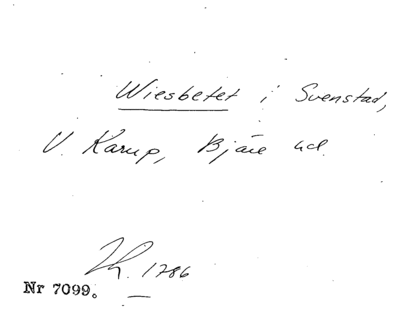 Wiesbetet i Svenstad,
V. Karup, Bjäre hd.
1786
Nr 7099.